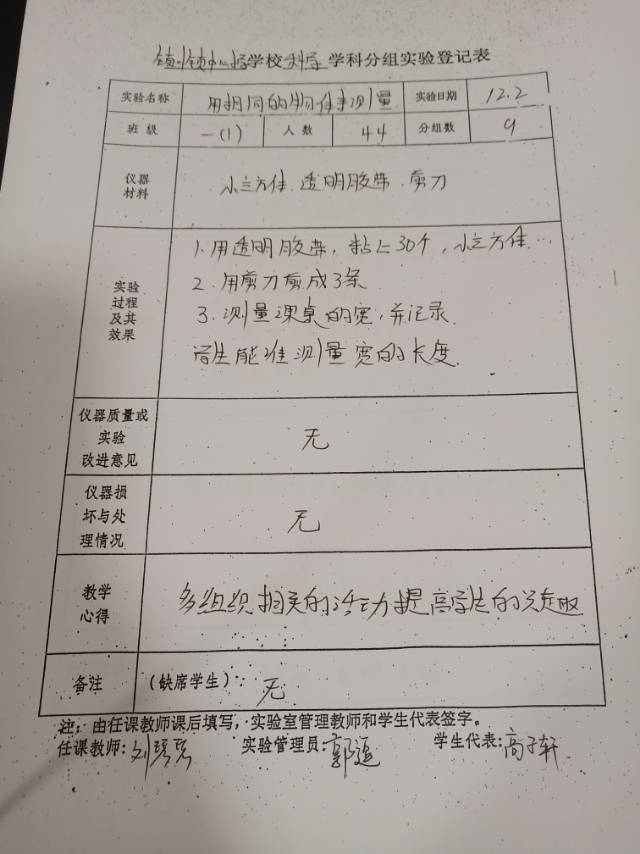 学校科学学科分组实验登记表
实验名称 用相同的物体来测量 实验日期 12.2
班级 一(1) 人数 44 分组数 9
仪器
材料
小立方体、透明胶带、剪刀
实验
过程
及其
效果
1.用透明胶带,粘上30个,小立方体…
2.用剪刀剪成3条
3.测量课桌的宽,并记录.
学生能准测量宽的长度.
仪器质量或
实验
改进意见
无
仪器损
坏与处
理情况
无
教学
心得
多组织相关的活动提高学生的兴趣
备注
(缺席学生): 无
注:由任课教师课后填写,实验室管理教师和学生代表签字。
任课教师:刘 实验管理员:郭 学生代表:高子轩